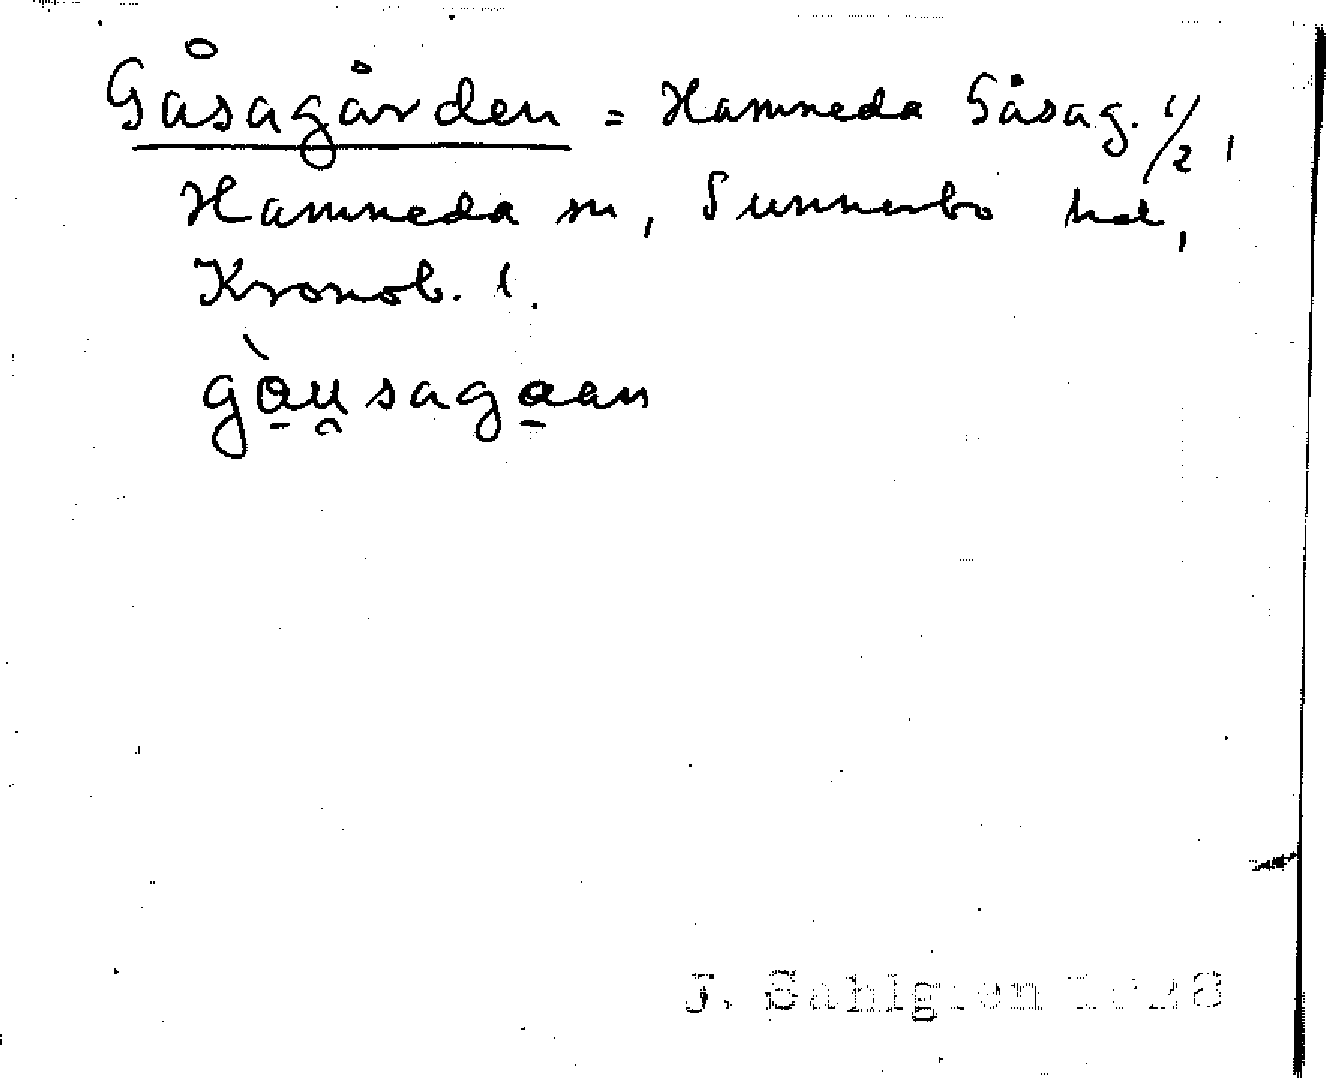 Gåsagården = Hamneda Gåsag. 1/2,
Hamneda sn, Sunnerbo hd,
Kronob. l.
gòu̯sagaan
J. Sahlgren 1928